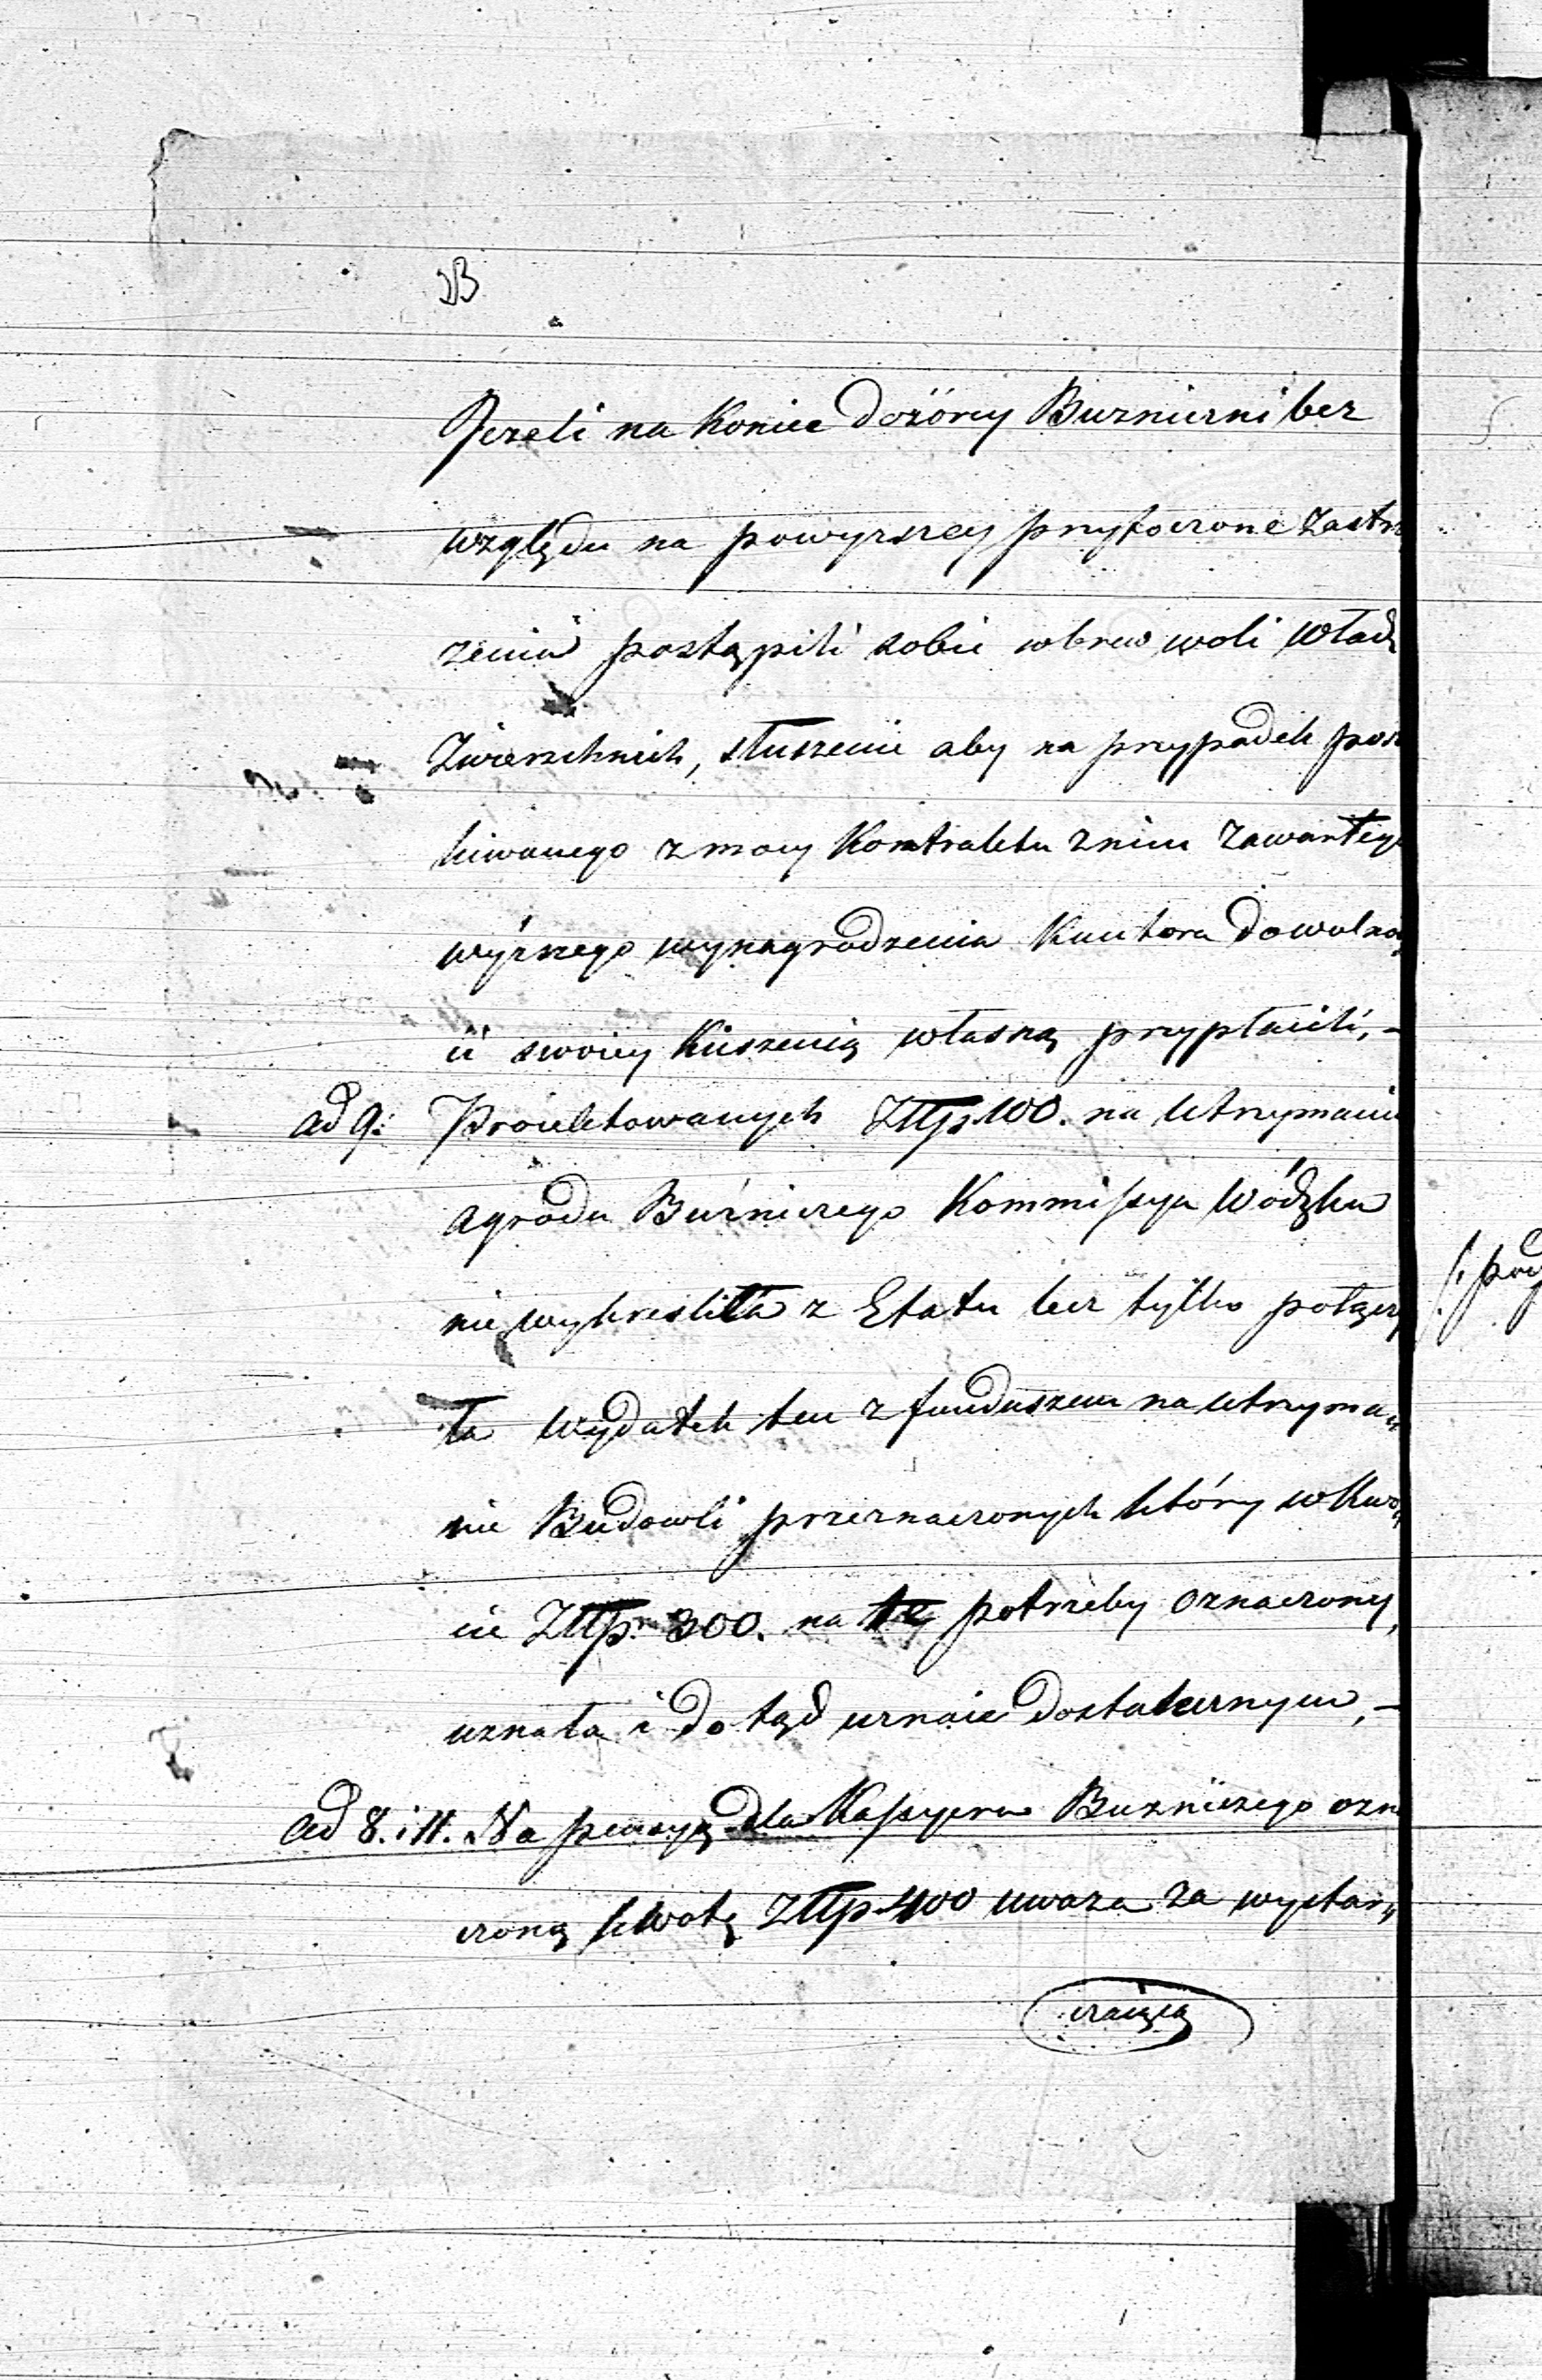 Jezeli na koniec dozórcy Buznierni bez
względu na powyrszey przytoczone zastrz
zenia postąpili sobie wbrew woli Władz
Zwierzchnich, słusznie aby na przypadek posz
kiwanego z mocy Kontraktu z nim zawartego
wyższego wynagrodzenia Kantora dowolną
ii swoiey kieszenią własną przypłacili,-
ad 9: Proiektowanych Złtp. 100. na utrzymanie
agrodu Buźniczego Kommissya Wódzka
nie wykreśliła z Etatu lecz tylko połączy
ła wydatek ten z funduszem na utrzyma„
nie Budowli przeznaczonych który w kwo„
cie Złtp. 300. na te potrzeby oznaczony,
uznała i dotąd uznaie dostatecznym,-
ad 8. i 11. Na pensyą dla Kassyera Buzniczego ozn
czoną kwotę Złtp. 400 uważa za wystar„
czaiącą